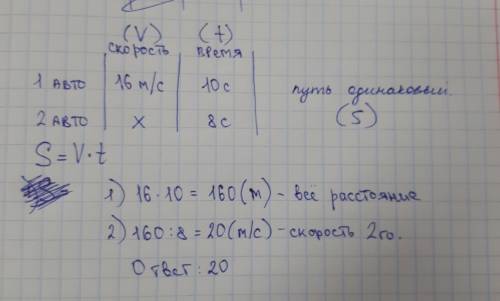 (V) (t)
скорость время
1 авто 16 м/с 10с путь одинаковый.
2 авто х 8с (S)
S=V·t
1) 16·10=160(м) - всё расстояние
2) 160:8=20(м/с) - скорость 2го.
Ответ: 20